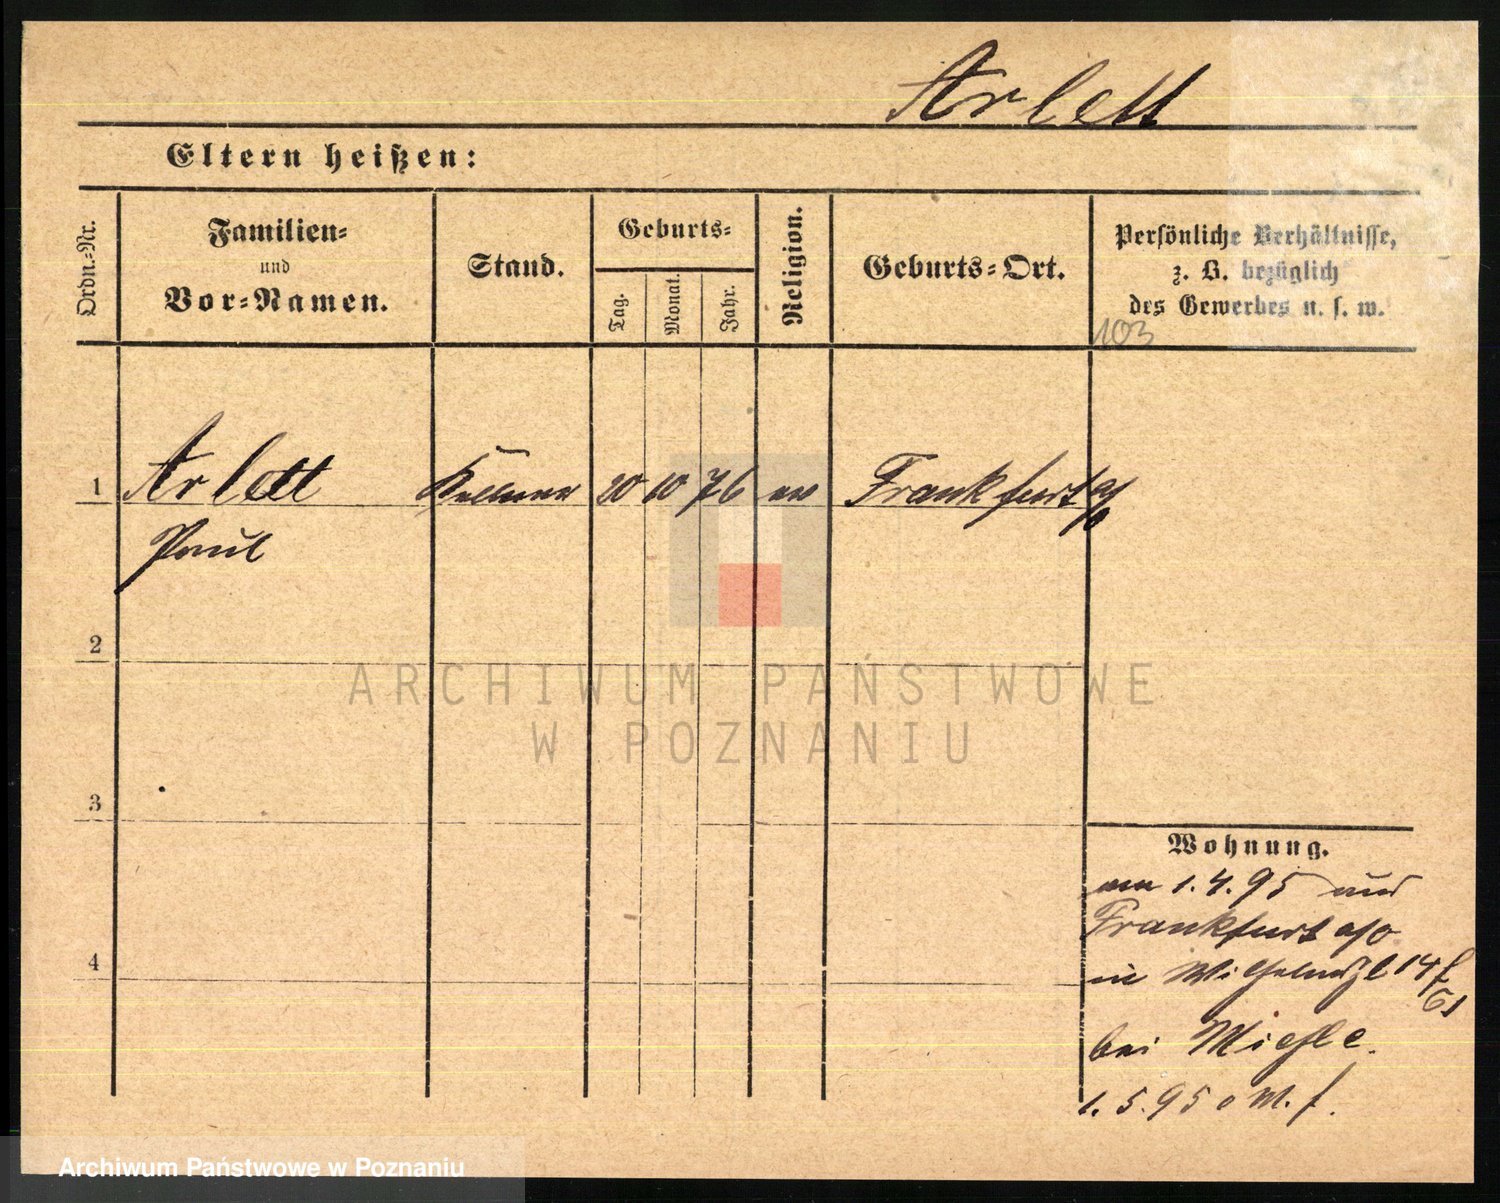 Arlett
Eltern heißen:
Ordn.-Nr.
Familien-
und
Vor-Namen.
Stand.
Geburts-
Tag.
Monat.
Jahr.
Religion.
Geburts-Ort.
Persönliche Verhältnisse,
z. B. bezüglich
des Gewerbes u. s. w.
103
1 Arlett Kellner 20 10 76 ev Frankfurt a/O
Paul
2
3
4
Wohnung.
am 1.4.95 aus
Frankfurt a/O
in Wilhelmspl 14
bei Miehle.
1.5.95
ARCHIWUM PAŃSTWOWE
W POZNANIU
Archiwum Państwowe w Poznaniu